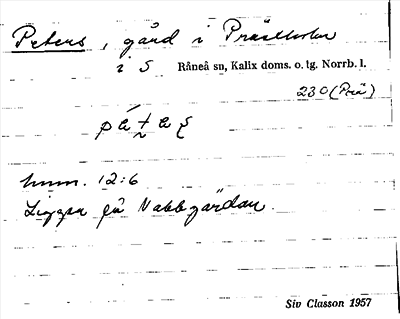 Peters, gård i Prästholm
i S Råneå sn, Kalix doms. o. tg. Norrb. l.
230 (Prä)
hmm. 12:6
Ligger på Nabbgärdan.
Siv Classon 1957